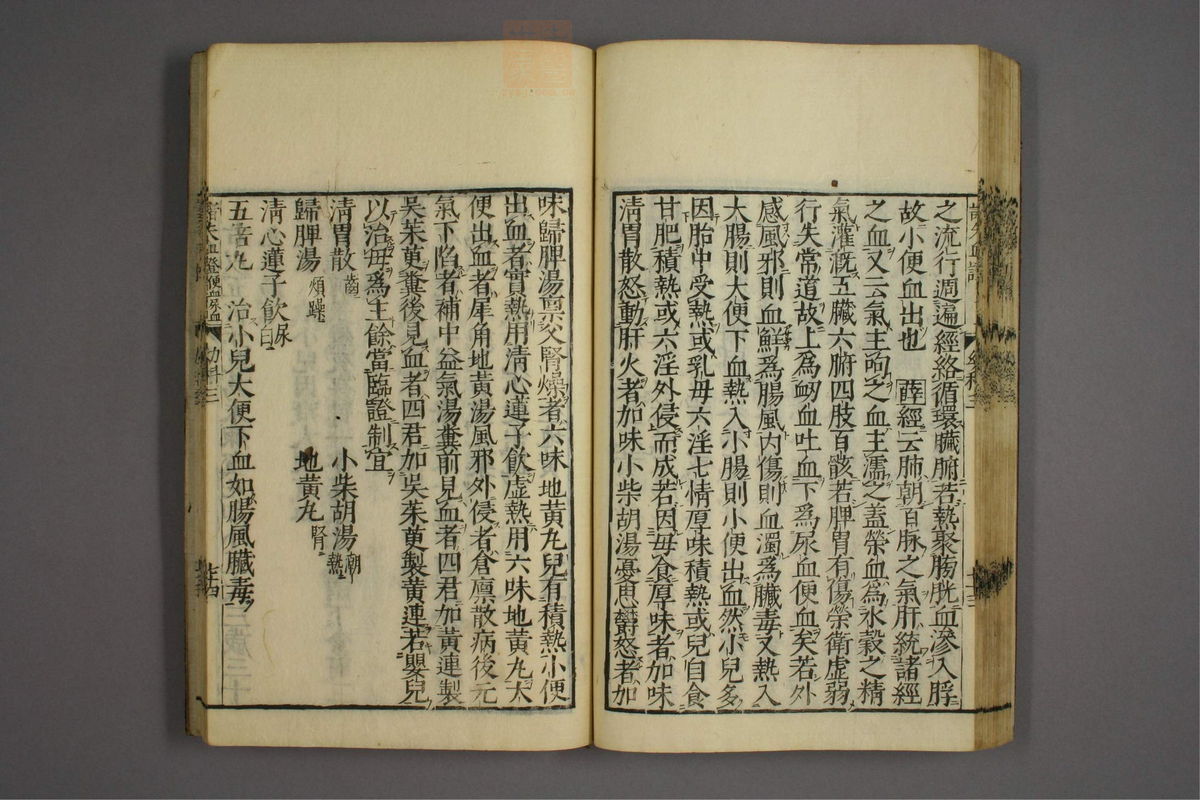 之流行週遍經絡循環臟腑若熱聚胸胱血滲入脬
故小便血出也 薛經云肺朝百脉之氣肝統諸經
之血又云氣主呴之血主濡之蓋榮血爲水穀之精
氣灌漑五臟六腑四肢百骸若脾胃有傷榮衛虛弱
行失常道故上爲衂血吐血下爲尿血便血矣若外
感風邪則血鮮爲腸風内傷則血濁爲臟毒又熱入
大腸則大便下血熱入小腸則小便出血然小兒多
因胎中受熱或乳母六淫七情厚味積熱或兒自食
甘肥積熱或六淫外侵而成若因母食厚味者加味
清胃散怒動肝火者加味小柴胡湯憂思鬱怒者加
味歸脾湯禀父腎燥者六味地黃丸兒有積熱小便
出血者實熱用清心蓮子飲虛熱用六味地黃丸大
便出血者犀角地黃湯風邪外侵者倉廪散病後元
氣下陷者補中益氣湯糞前見血者四君加黃連製
吳茱萸糞後見血者四君加吳茱萸製黃連若嬰兒
以治母爲主餘當臨證制宜
清胃散齒 小柴胡湯潮熱
歸脾湯煩躁 地黃丸腎
清心蓮子飲尿白
五苓丸 治小兒大便下血如腸風臟毒
諸失血證便血尿血 幼科三 十四